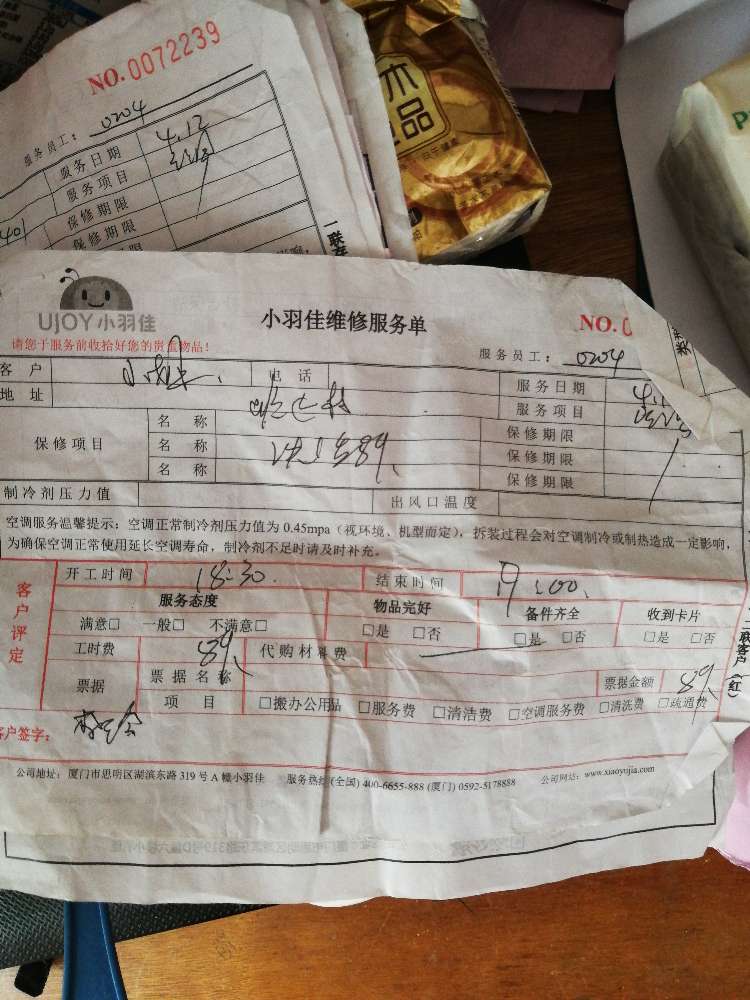 NO.0072239
服务员工： 0204
服务日期 4.12
服务项目
保修期限
401 保修期限
保修期限
一联存
木
品
P
UJOY小羽佳
小羽佳维修服务单
NO.0
请您于服务前收拾好您的贵重物品！
服务员工： 0204
客户 电话 服务日期 4.1
地址 服务项目
保修项目 名称 保修期限
名称 89 保修期限
名称 保修期限
制冷剂压力值 出风口温度
空调服务温馨提示：空调正常制冷剂压力值为 0.45mpa（视环境、机型而定），拆装过程会对空调制冷或制热造成一定影响，
为确保空调正常使用延长空调寿命，制冷剂不足时请及时补充。
客户评定
开工时间 18:30 结束时间 19:00
服务态度 物品完好 备件齐全 收到卡片
满意□ 一般□ 不满意□ □是 □否 □是 □否 □是 □否
工时费 89 代购材料费
票据 票据名称 票据金额 89
项目 □搬办公用品 □服务费 □清洁费 □空调服务费 □清洗费 □疏通费
二联客户（红）
客户签字：
公司地址：厦门市思明区湖滨东路 319 号 A 幢小羽佳 服务热线(全国) 400-6655-888 (厦门) 0592-5178888 公司网站：www.xiaoyujia.com